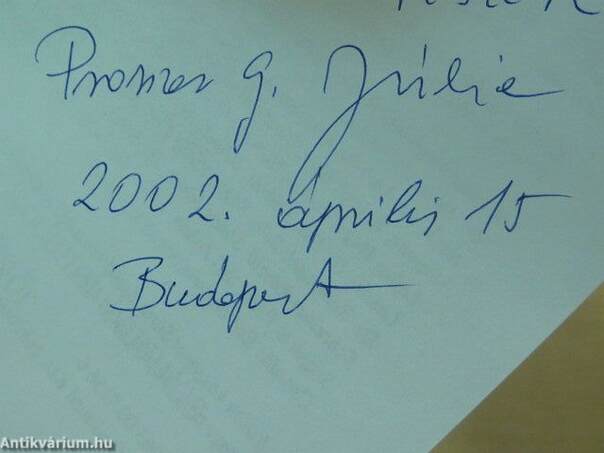 G. Júlia
2002. április 15
Budapest
Antikvárium.hu